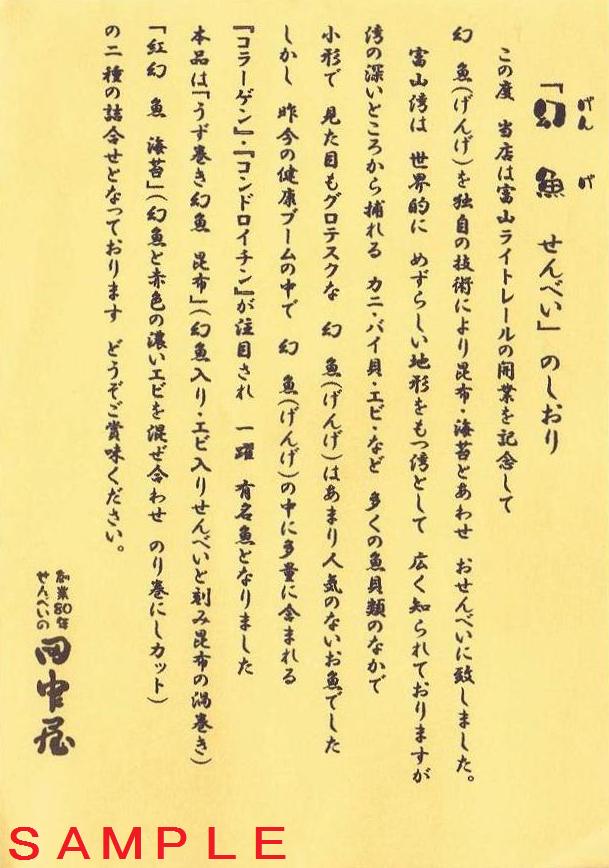 「幻魚 せんべい」のしおり
げん げ
この度 当店は富山ライトレールの開業を記念して
幻 魚(げんげ)を独自の技術により昆布・海苔とあわせ おせんべいに致しました。
富山湾は 世界的に めずらしい地形をもつ湾として 広く知られておりますが
湾の深いところから捕れる カニ・バイ貝・エビ・など 多くの魚貝類のなかで
小形で 見た目もグロテスクな 幻 魚(げんげ)はあまり人気のないお魚でした
しかし 昨今の健康ブームの中で 幻 魚(げんげ)の中に多量に含まれる
『コラーゲン』・『コンドロイチン』が注目され 一躍 有名魚となりました
本品は「うず巻き幻魚 昆布」(幻魚入り・エビ入りせんべいと刻み昆布の渦巻き)
「紅幻 魚 海苔」(幻魚と赤色の濃いエビを混ぜ合わせ のり巻にしカット)
の二種の詰合せとなっております どうぞご賞味ください。
創業80年
せんべいの
田中屋
SAMPLE